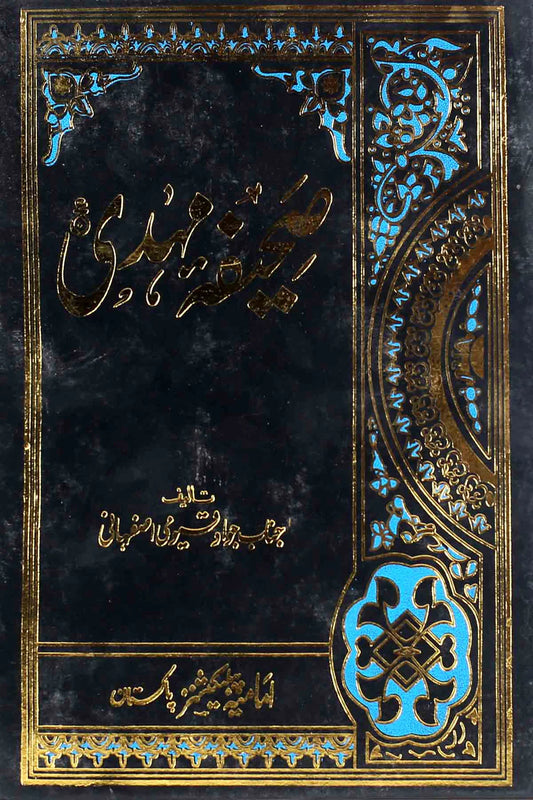 صحیفۂ مہدیؑ
تالیف
جناب جواد قیومی اصفہانی
امامیہ پبلیکیشنز پاکستان